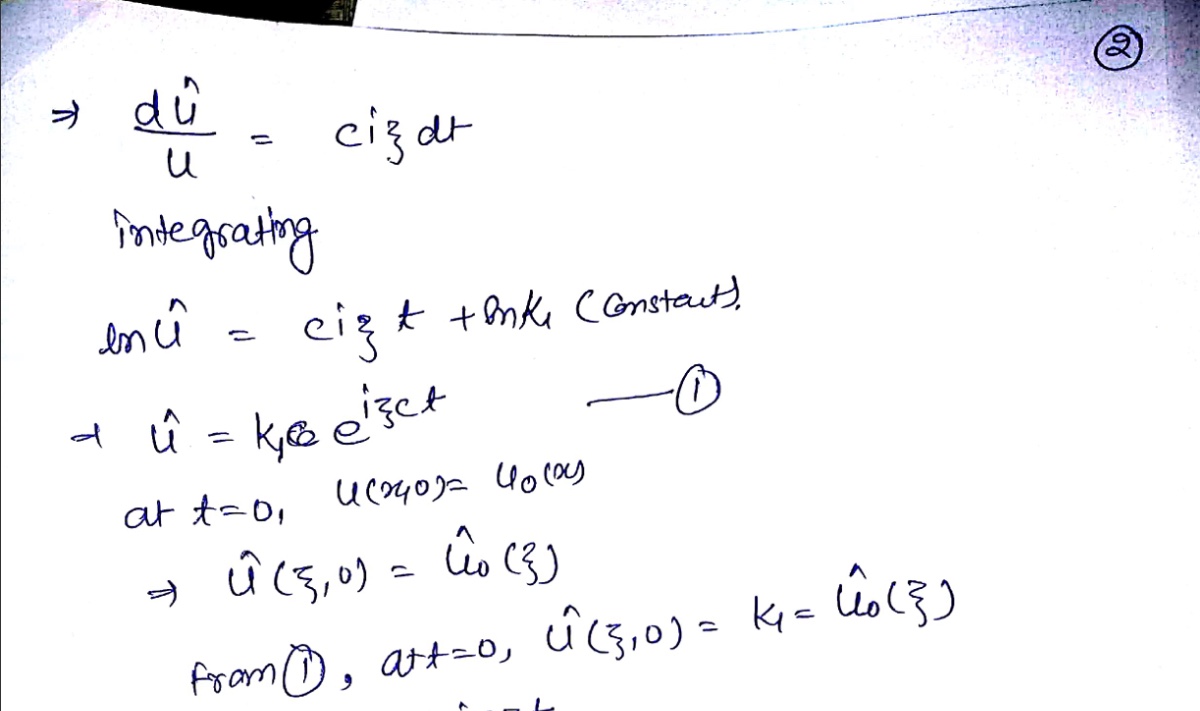 ②
⇒ dû/u = ciξ dt
integrating
ln û = ciξ t + ln k₁ (Constant).
⇒ û = k₁ e^{iξct} —①
at t=0, u(x,0)= u₀(x)
⇒ û(ξ,0) = û₀(ξ)
from ①, at t=0, û(ξ,0) = k₁ = û₀(ξ)